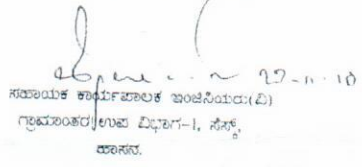 27-11-18
ಸಹಾಯಕ ಕಾರ್ಯಪಾಲಕ ಇಂಜಿನಿಯರು(ವಿ)
ಗ್ರಾಮಾಂತರ ಉಪ ವಿಭಾಗ-1, ಸೆಸ್ಕ್,
ಹಾಸನ.